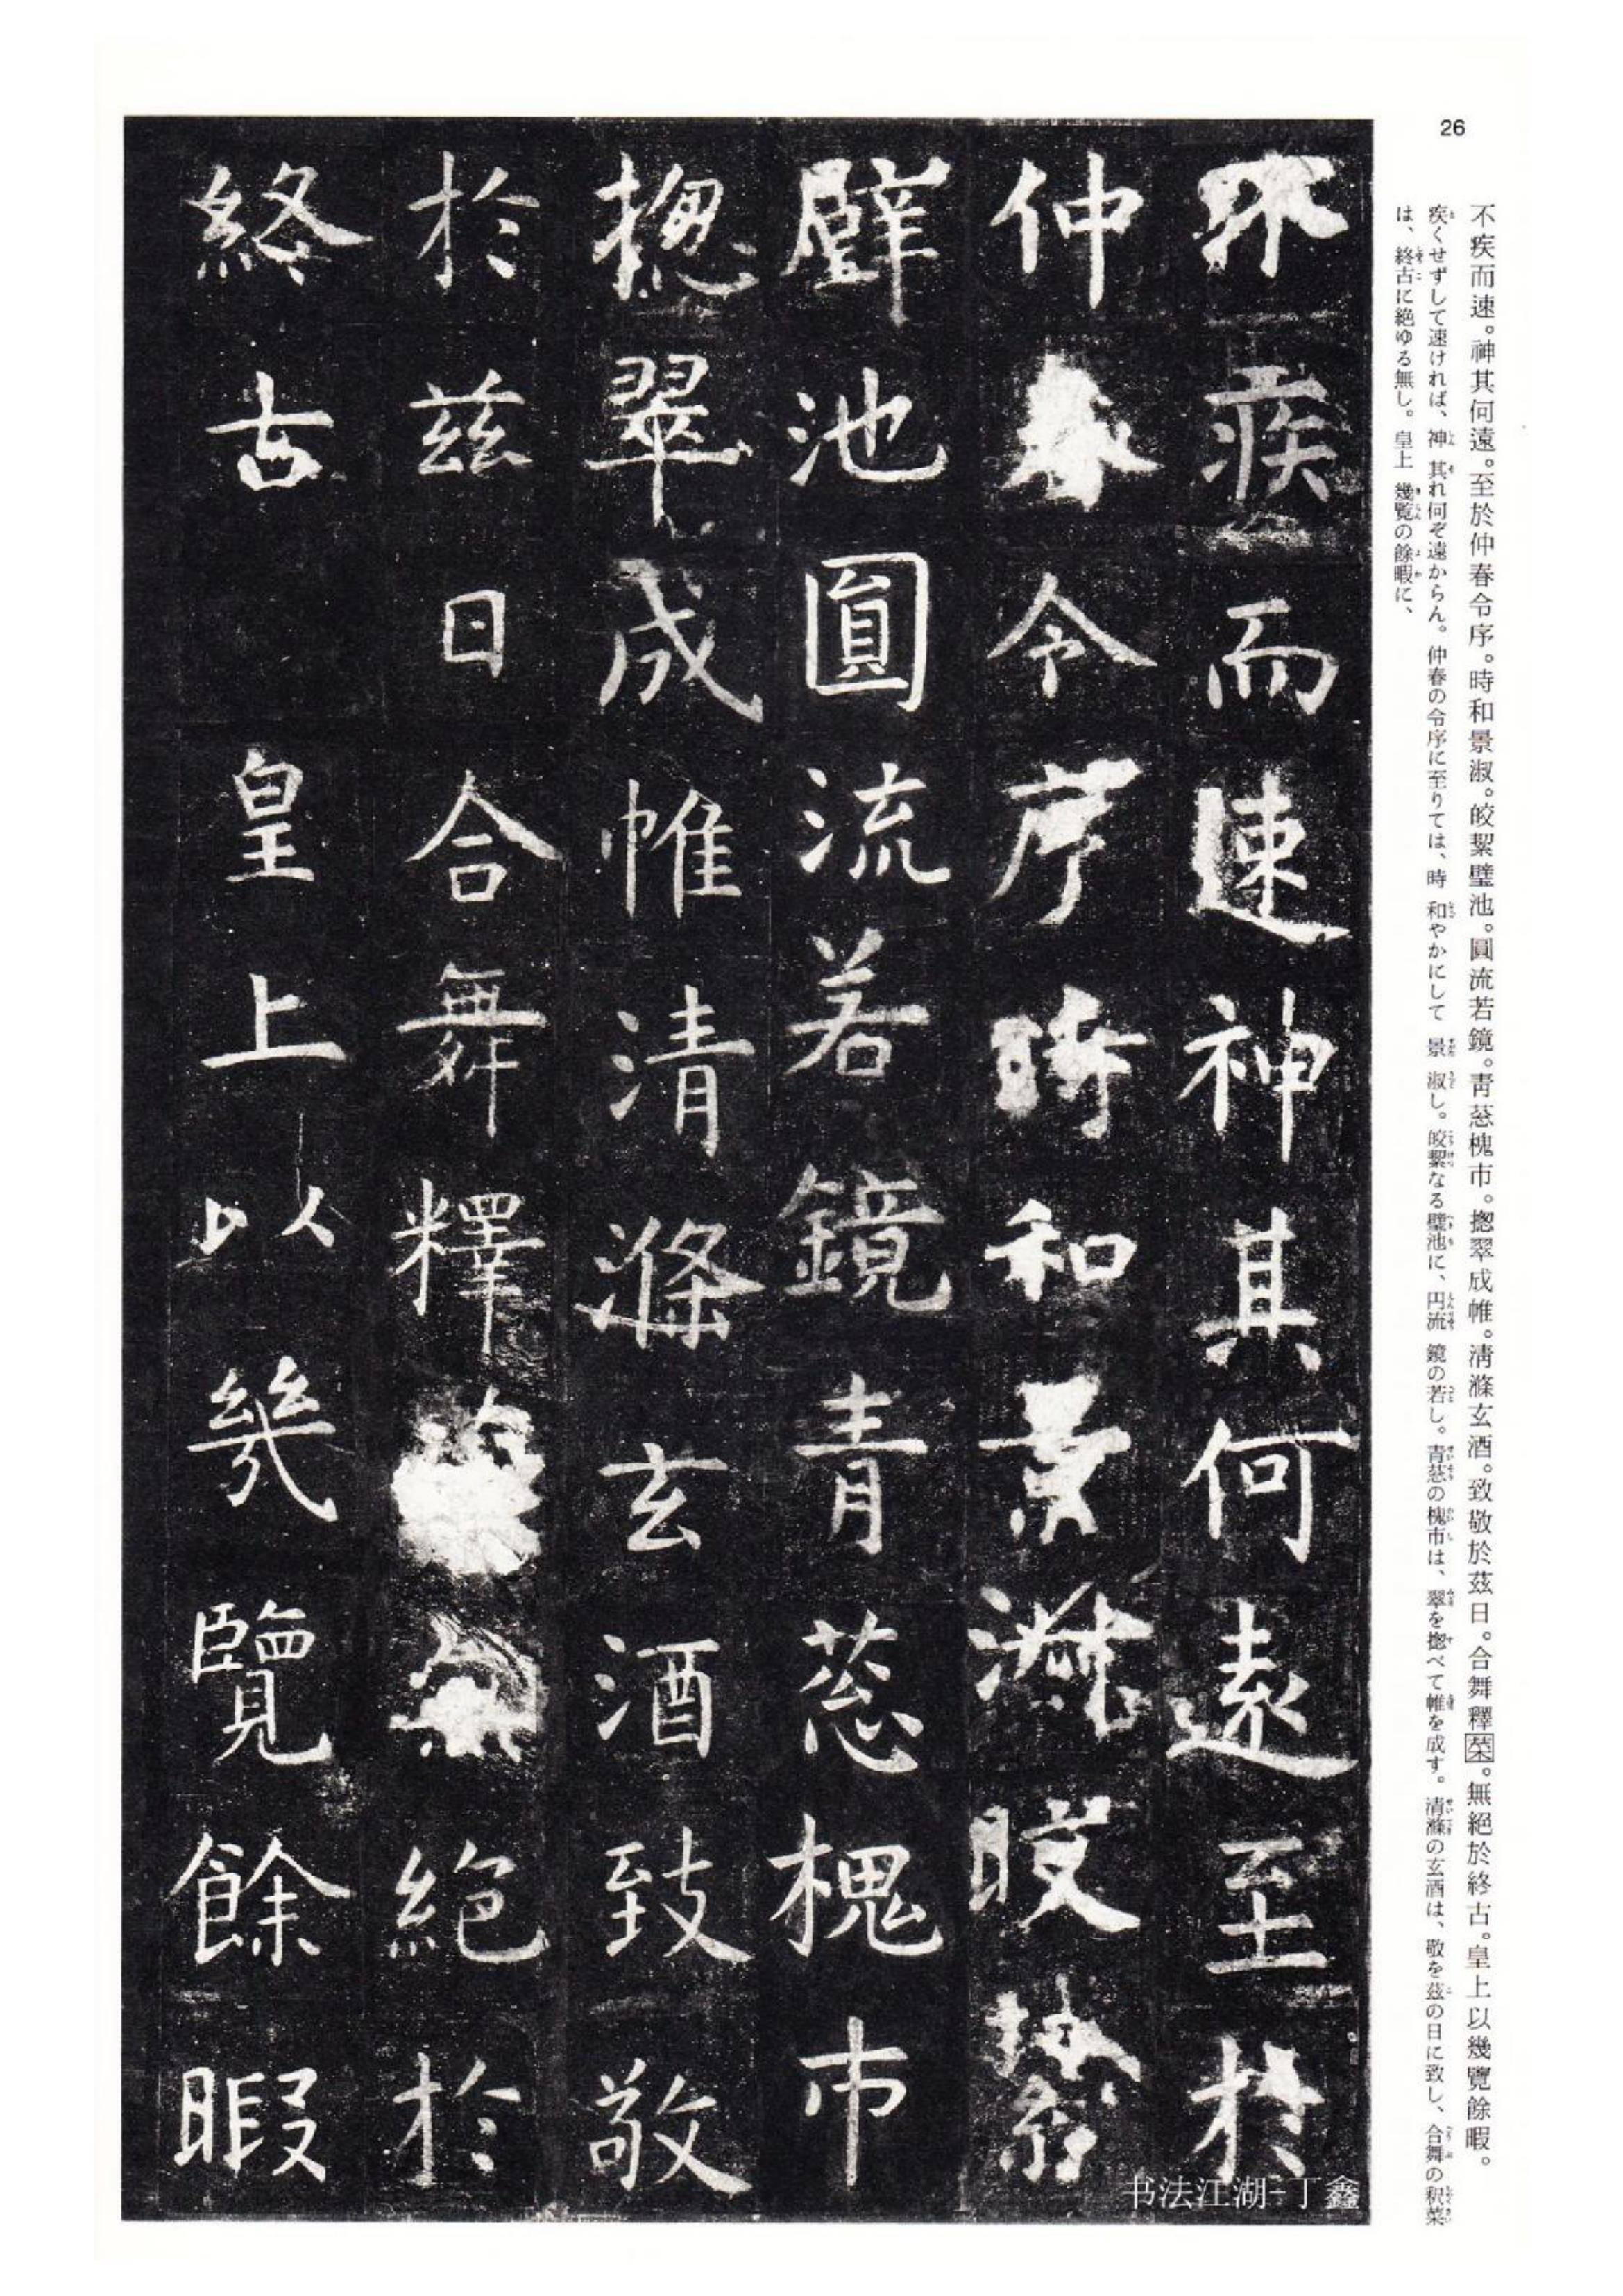 26
不疾而速。神其何遠。至於仲春令序。時和景淑。皎潔璧池。圓流若鏡。青葱槐市。摠翠成帷。清滌玄酒。致敬於茲日。合舞釋菜。無絕於終古。皇上以幾覽餘暇。
疾くせずして速ければ、神其れ何ぞ遠からん。仲春の令序に至りては、時和やかにして景淑し。皎潔なる璧池に、円流鏡の若し。青葱の槐市は、翠を摠べて帷を成す。清滌の玄酒は、敬を茲の日に致し、合舞の釈菜
は、終古に絶ゆる無し。皇上幾覧の餘暇に、
不疾而速神其何遠至於
仲春令序時和景淑皎潔
璧池圓流若鏡青葱槐市
摠翠成帷清滌玄酒致敬
於茲日合舞釋無絕於
終古 皇上以幾覽餘暇
书法江湖-丁鑫